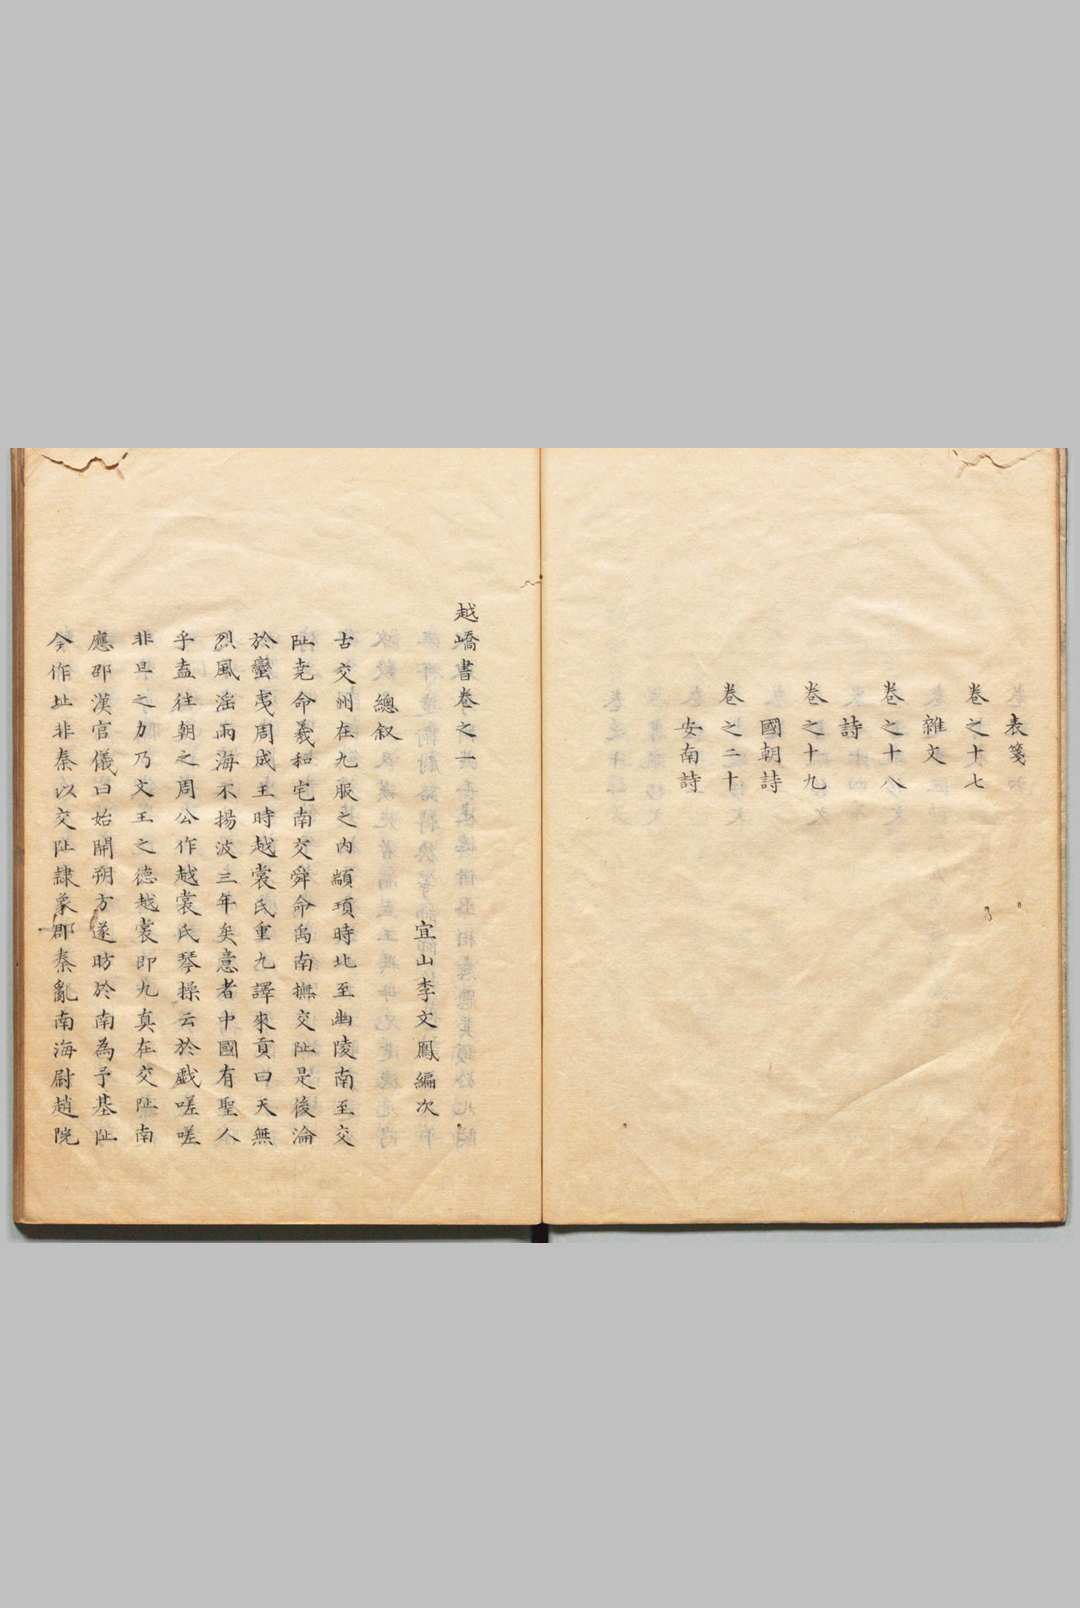 表箋
卷之十七
雜文
卷之十八
詩
卷之十九
國朝詩
卷之二十
安南詩
越嶠書卷之一
宜山李文鳳編次
總叙
古交州在九服之內顓頊時北至幽陵南至交
阯堯命羲和宅南交舜命禹南撫交阯是後淪
於蠻夷周成王時越裳氏重九譯來貢曰天無
烈風滛雨海不揚波三年矣意者中國有聖人
乎盍往朝之周公作越裳氏琴操云於戲嗟嗟
非旦之力乃文王之德越裳即九真在交阯南
應邵漢官儀曰始開朔方遂昉於南為子基阯
今作址非秦以交阯隷象郡秦亂南海尉趙